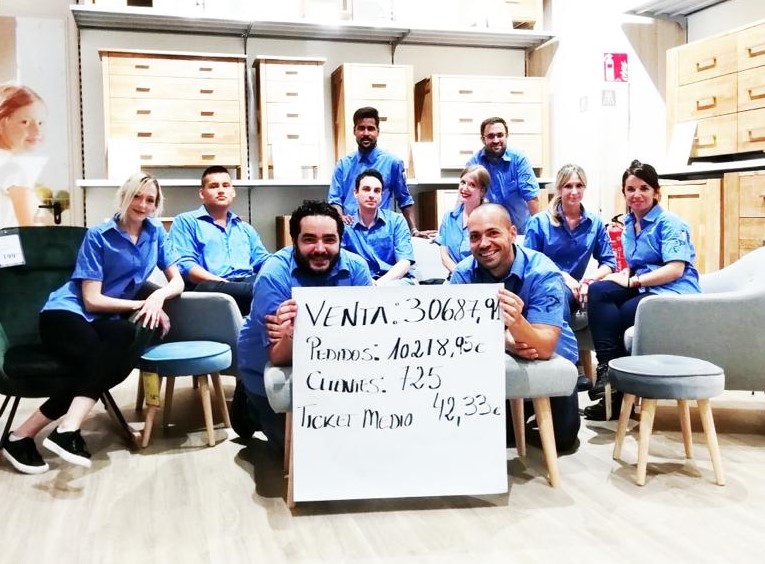 VENTA: 30687,91
PEDIDOS: 10218,95€
CLIENTES: 725
TICKET MEDIO 42,33€